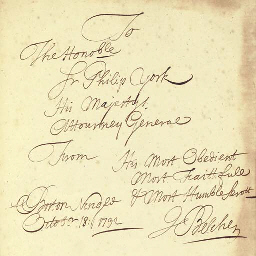 To
The Honoble
Sr Philip York
His Majestys
Attourney General
From
His Most Obedient
Most Faithfull
& Most Humble Servt
Boston
Octobr 18
J Belcher